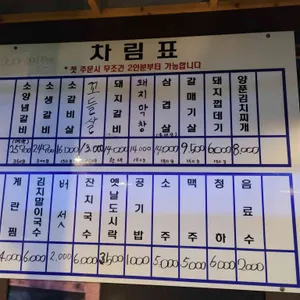 차림표
*첫 주문시 무조건 2인분부터 가능합니다
소양념갈비
소생갈비
소갈비살
꼬들살
돼지갈비
돼지막창
삼겹살
갈매기살
돼지껍데기
양푼김치찌개
25900 24900 16,000 13,000 14,000 14,000 14,000 9,500 6000 8,000
계란찜
김치말이국수
버섯
잔치국수
옛날도시락
공기밥
소주
맥주
청하
음료수
4,000 6,000 2,000 6,000 1000 5,000 5,000 6,000 2000